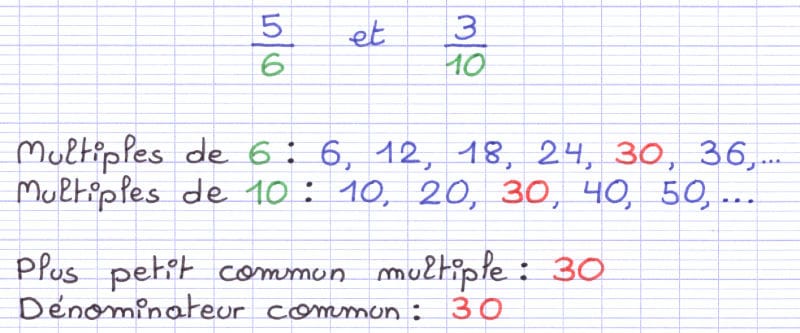 5/6 et 3/10
Multiples de 6 : 6, 12, 18, 24, 30, 36,...
Multiples de 10 : 10, 20, 30, 40, 50,...
Plus petit commun multiple : 30
Dénominateur commun : 30